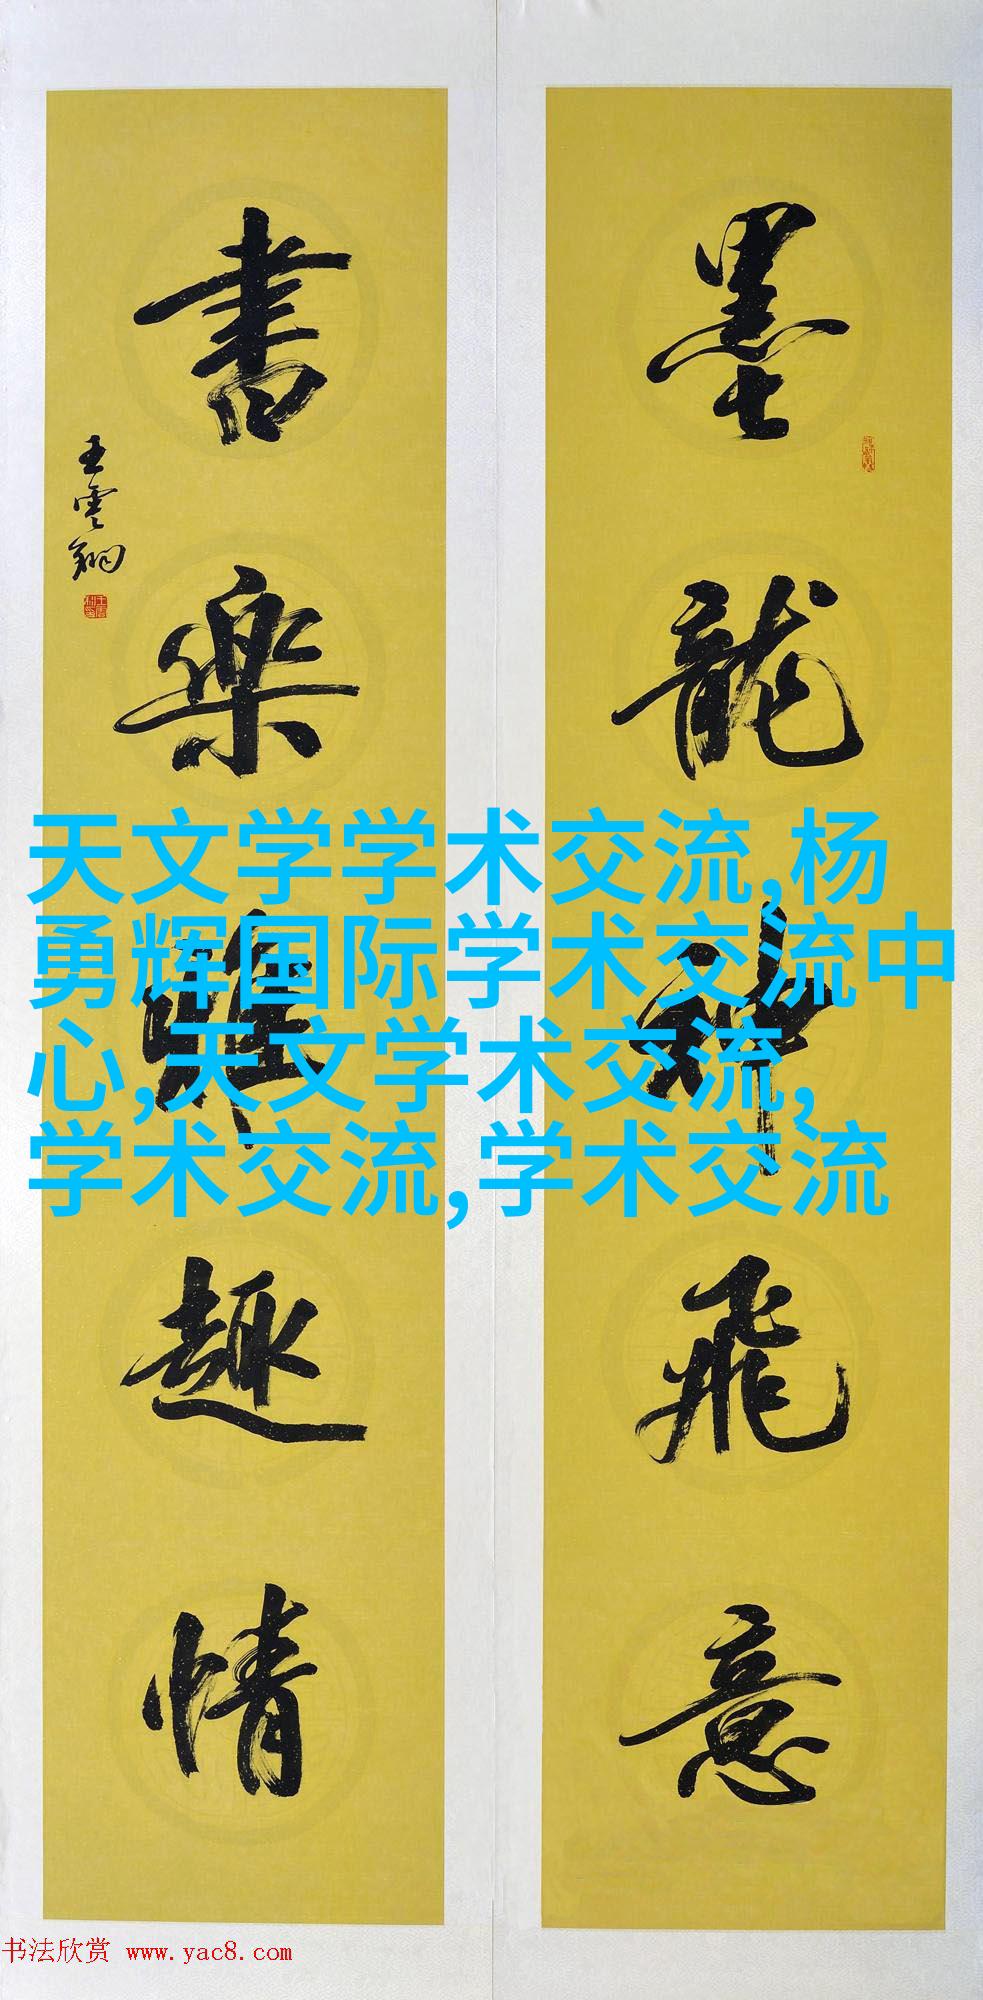 墨龍神飛意
書樂雅趣情
王雲翔
天文学学术交流,杨
勇辉国际学术交流中
心,天文学术交流,
学术交流,学术交流
书法欣赏 www.yac8.com